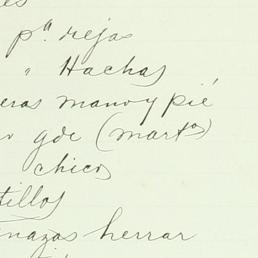 es
pª rejas
" Hachas
eras mano y pié
gde (martº)
chicos
tillos
nazas herrar